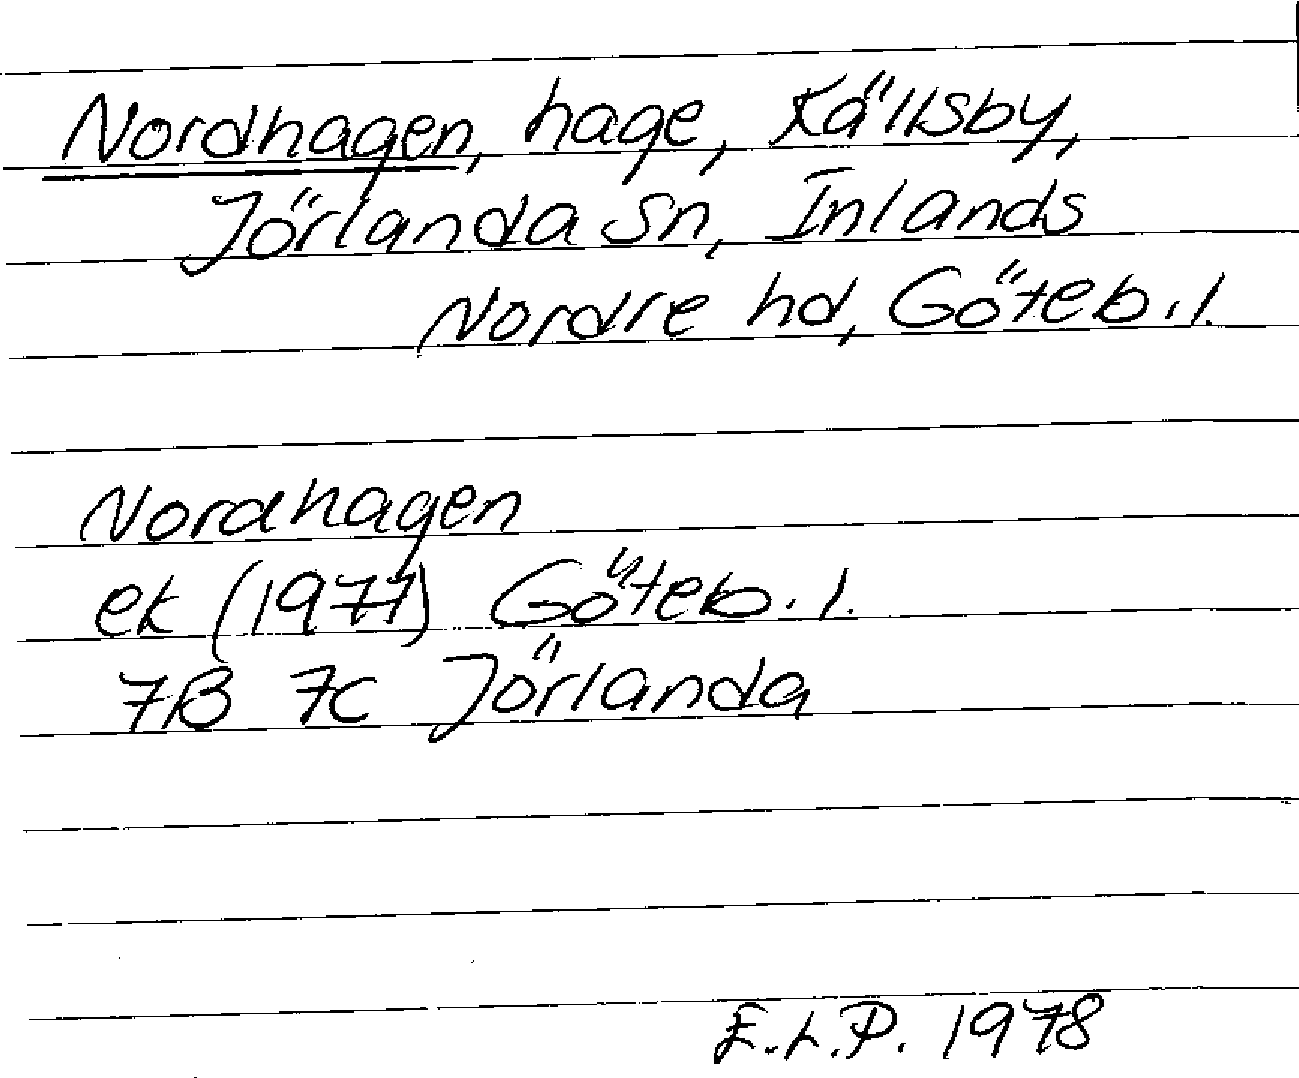 Nordhagen, hage, Källsby,
Jörlanda sn, Inlands
Nordre hd, Göteb.l.
Nordhagen
ek (1977) Göteb.l.
7B 7c Jörlanda
E.L.P. 1978